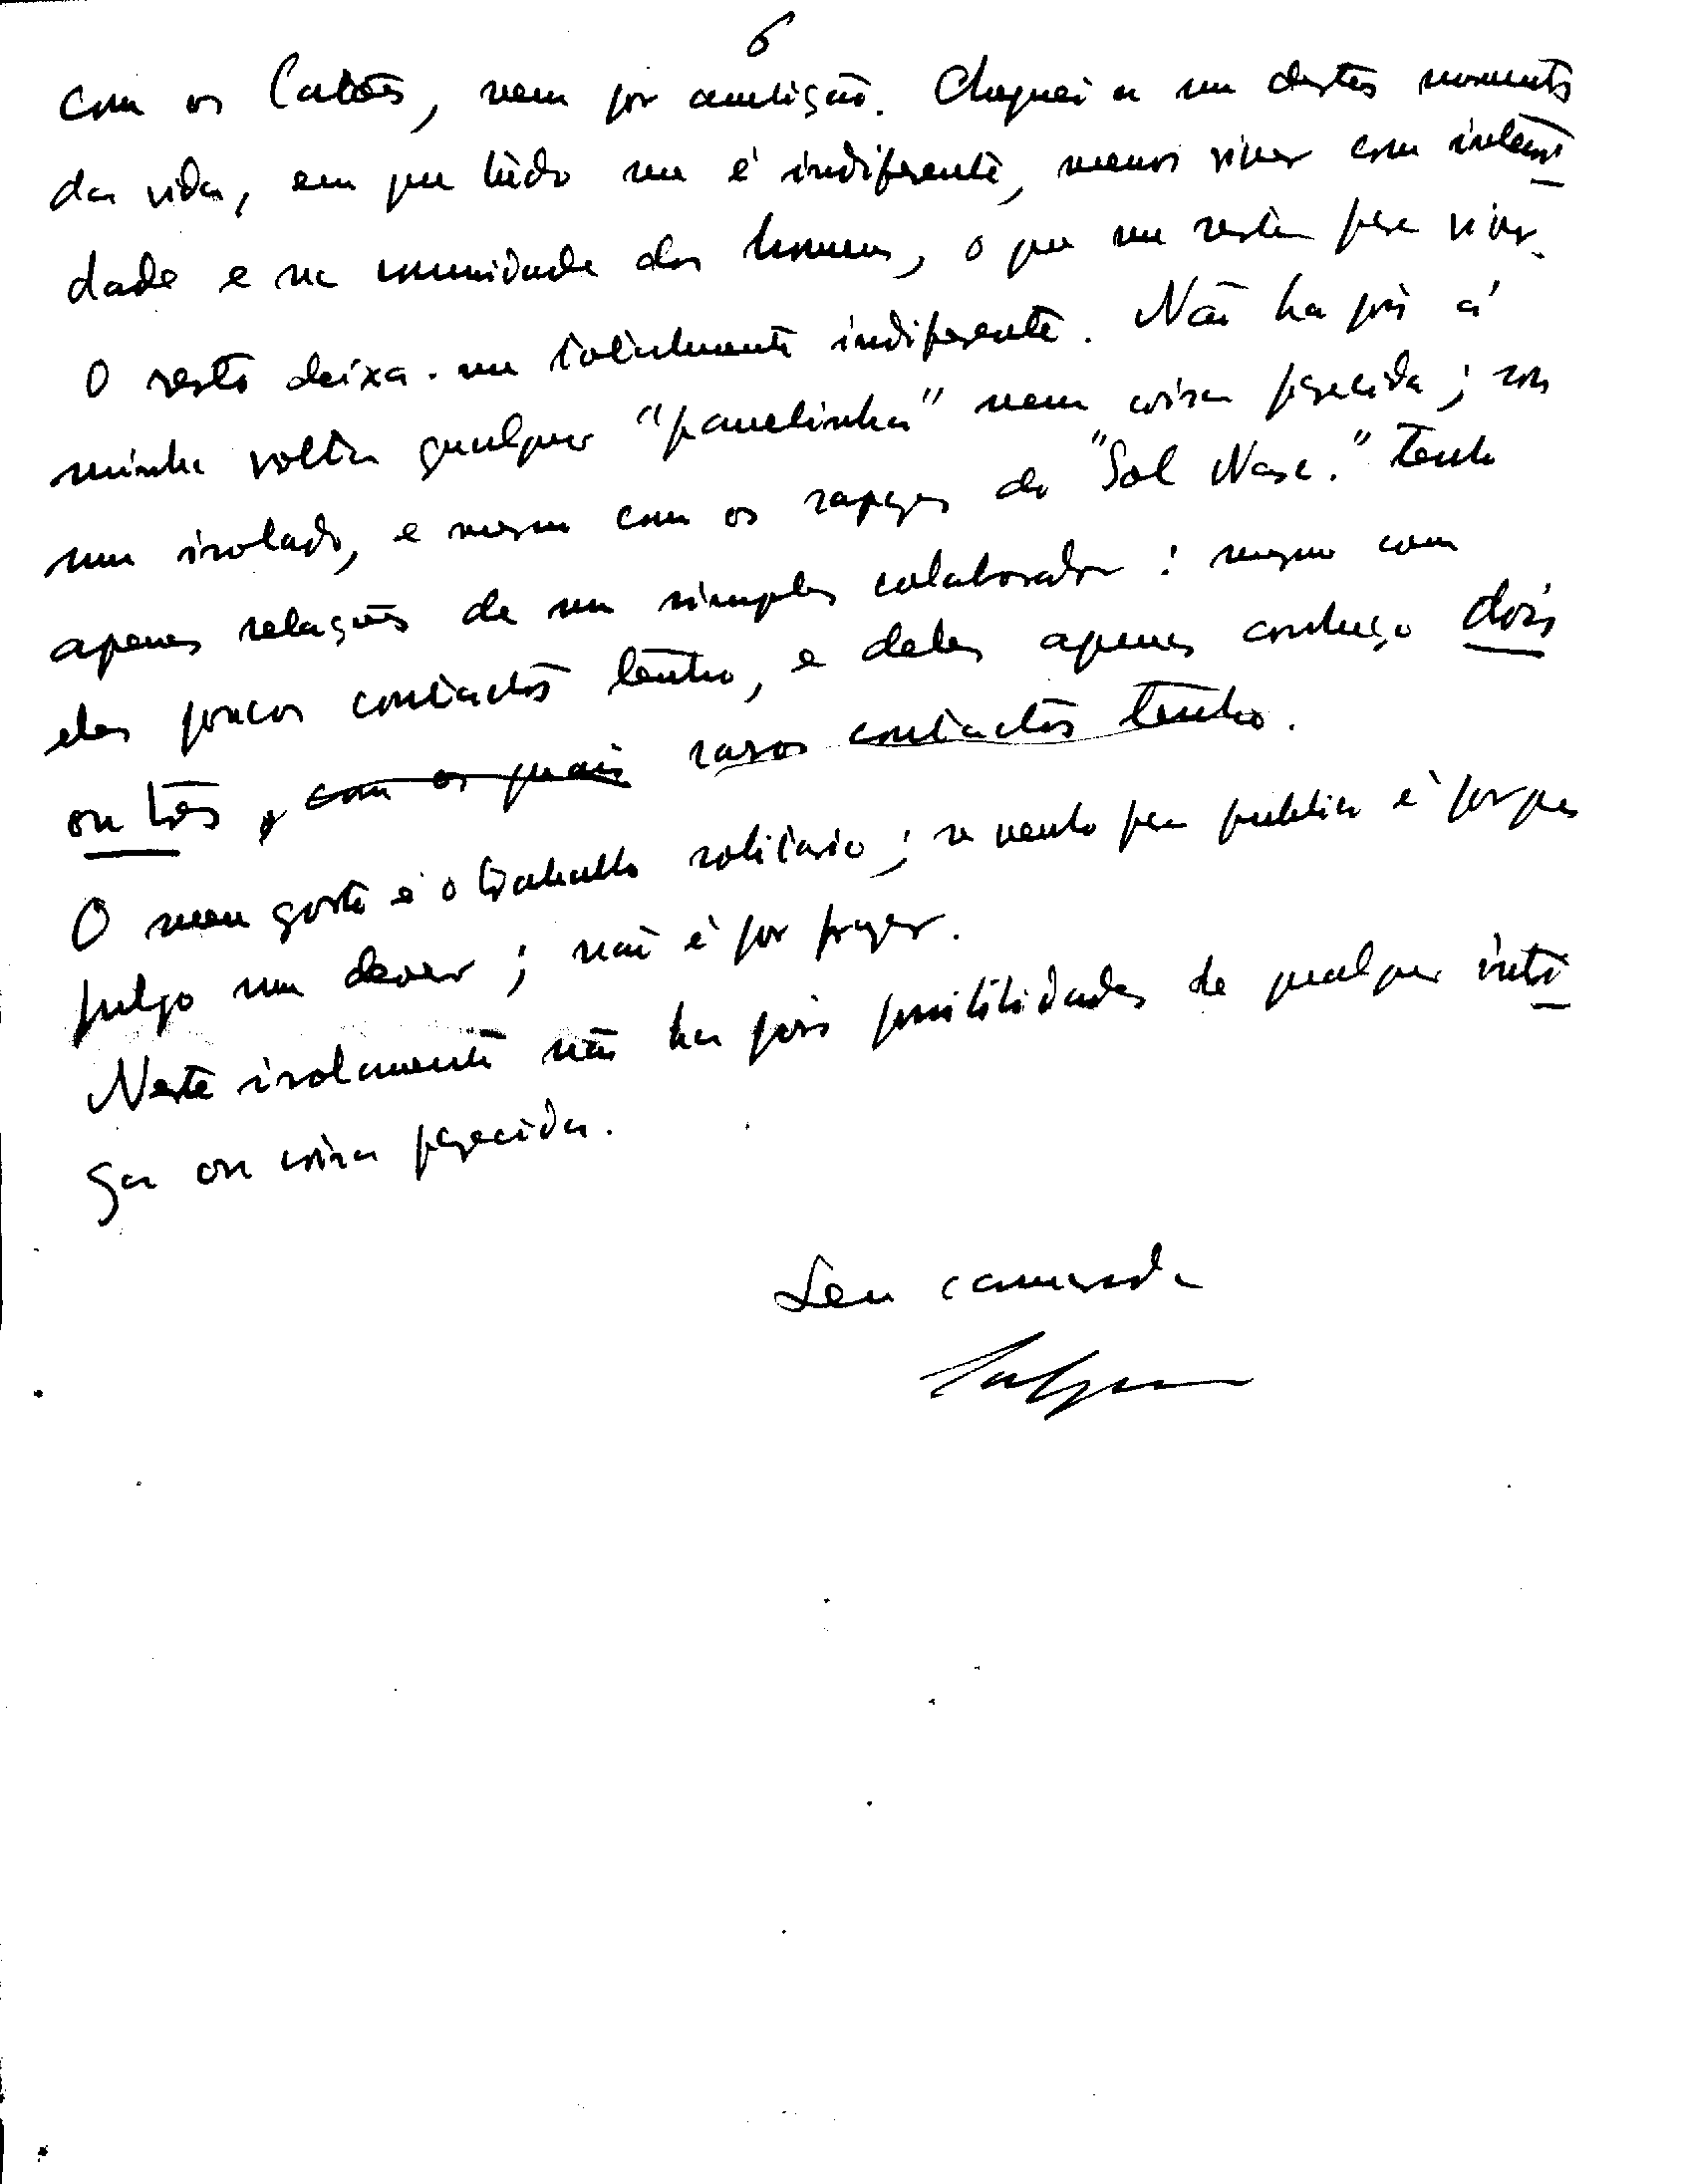 6
com os Catões, nem por ambição. Cheguei a um destes momentos
da vida, em que tudo me é indiferente, menos viver com intensi
dade e na comunidade dos homens, o que me resta para viver.
O resto deixa-me totalmente indiferente. Não ha pois á
minha volta qualquer "panelinha" nem coisa parecida; sou
um isolado, e mesmo com os rapazes do "Sol Nasc." tenho
apenas relações de um simples colaborador: mesmo com
eles poucos contactos tenho, e deles apenas conheço dois
ou três, com os quais raros contactos tenho.
O meu gosto é o trabalho solitario; se venho para publico é porque
julgo um dever; não é por prazer.
Neste isolamento não ha pois possibilidades de qualquer intri
ga ou coisa parecida.
Seu camarada